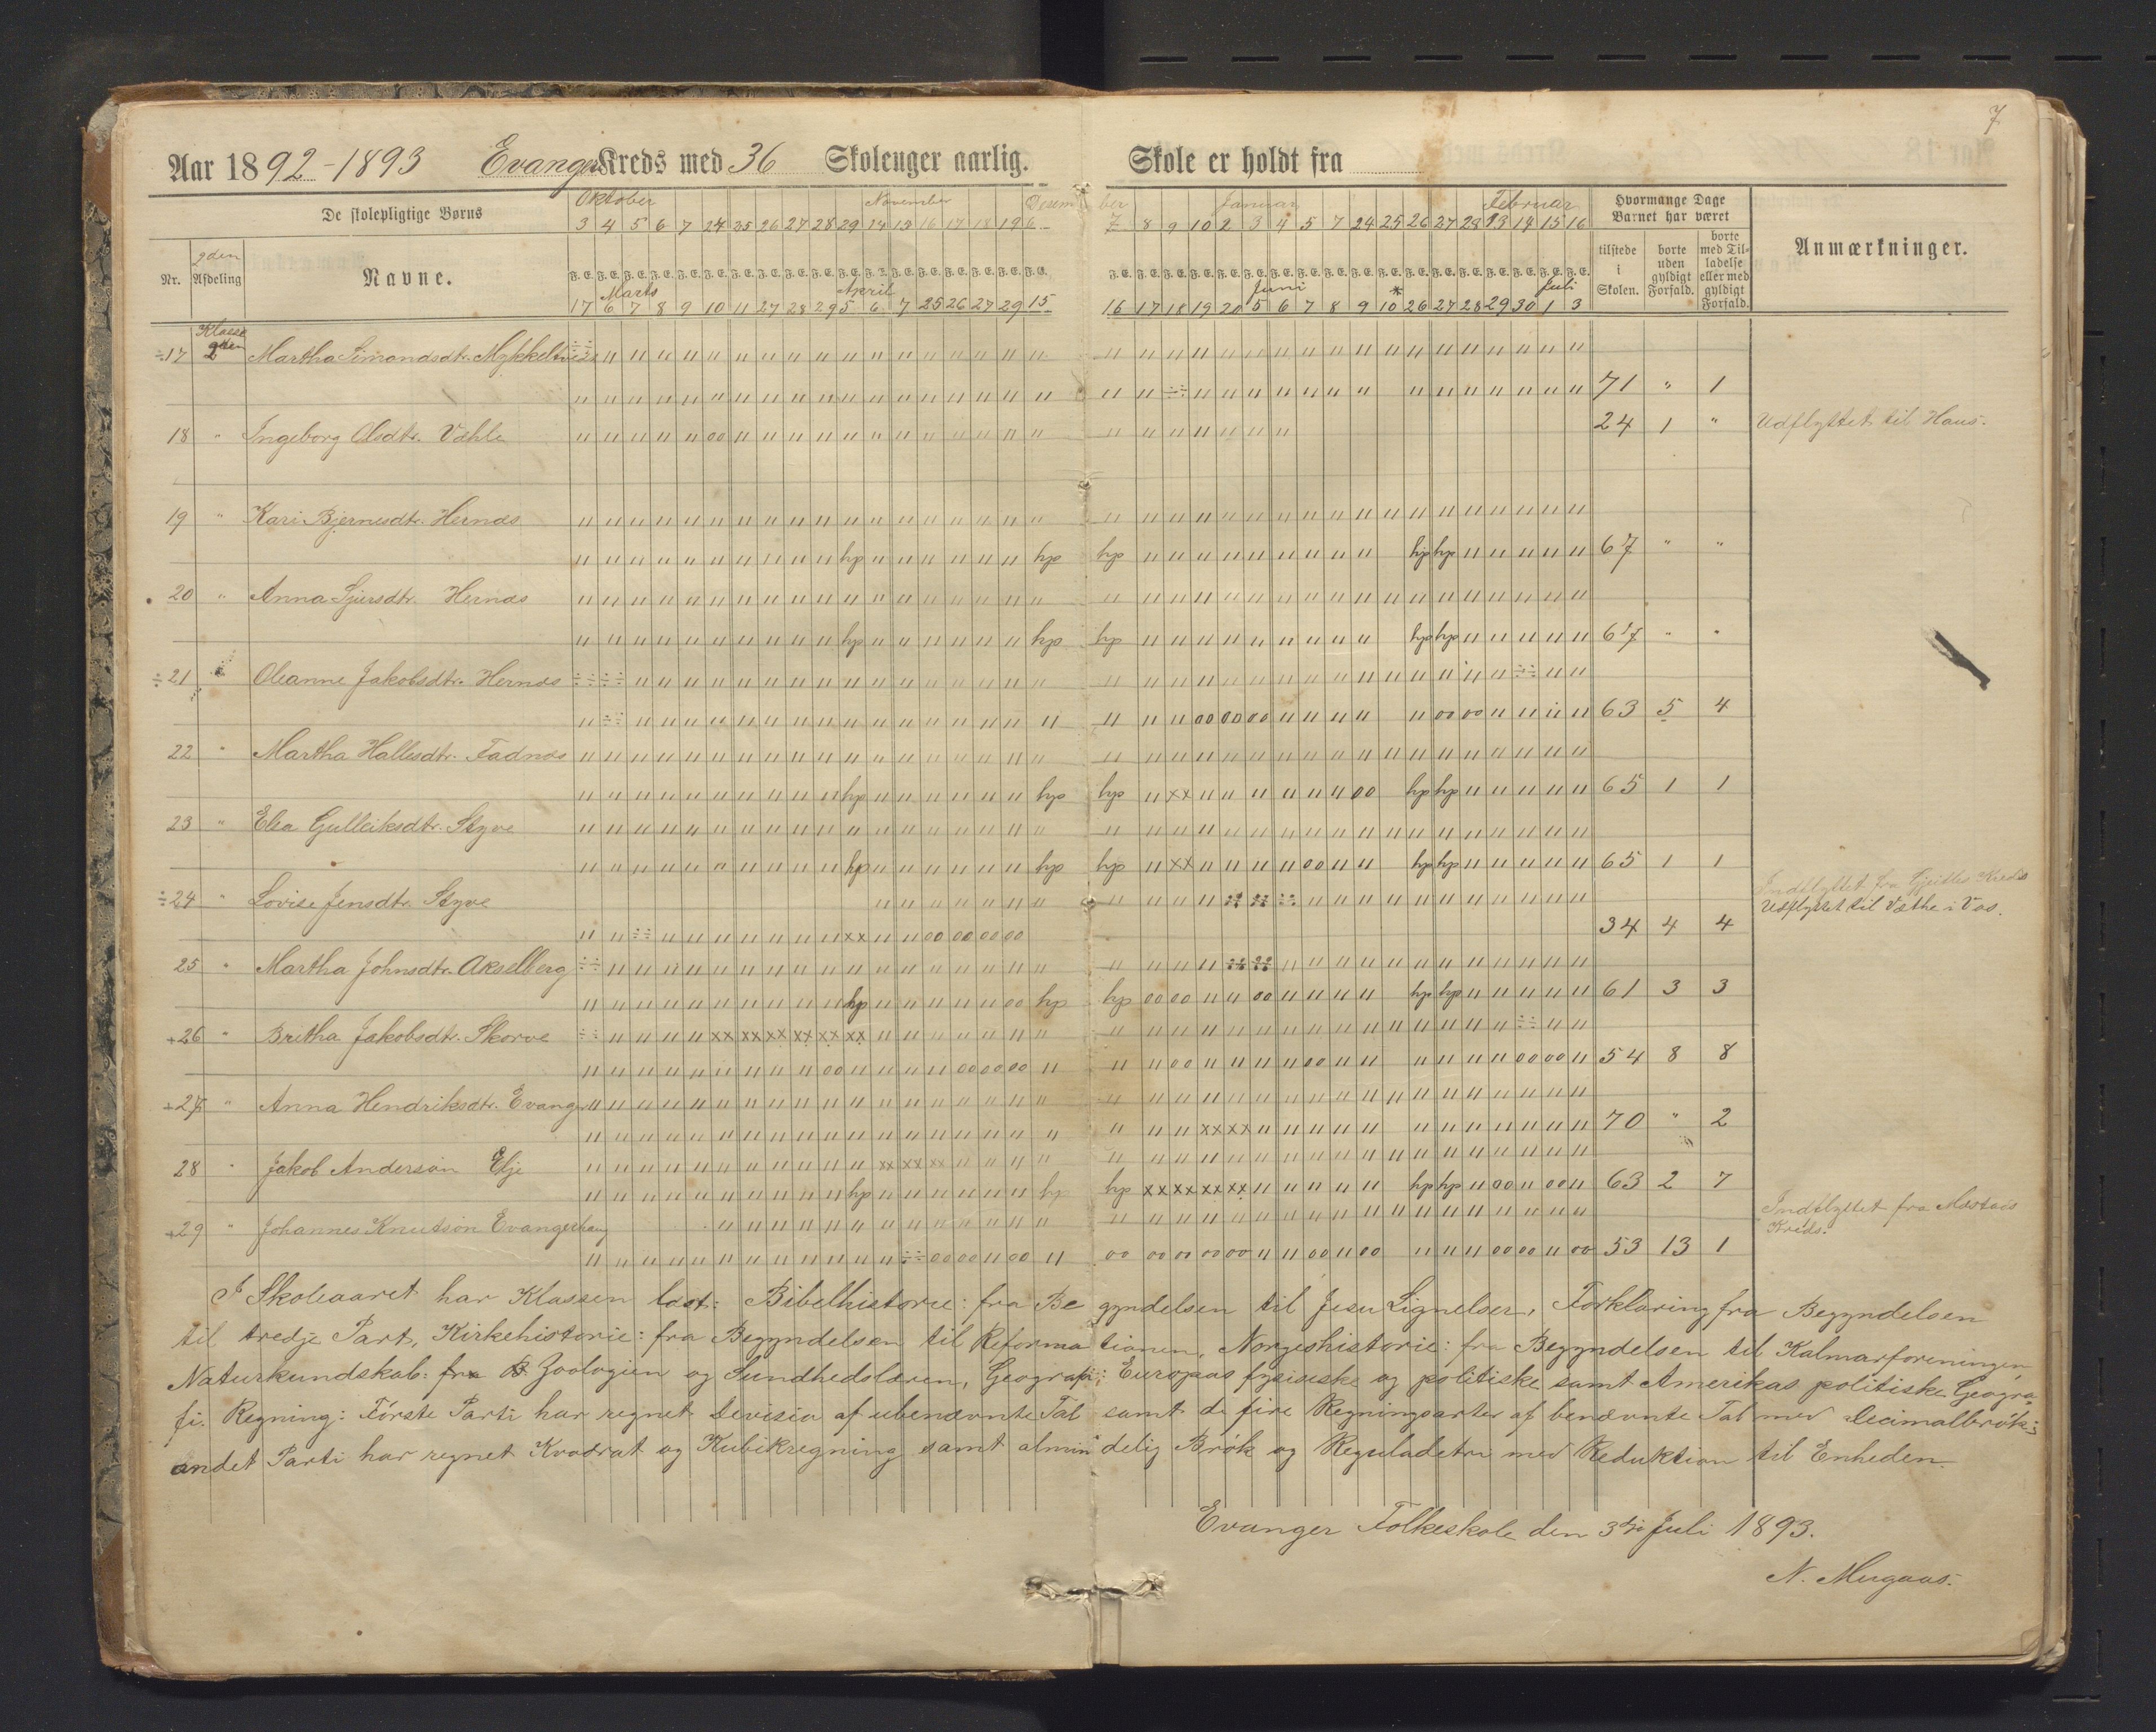 7
Aar 1892-1893 Evanger Kreds med 36 Skoleuger aarlig. Skole er holdt fra
De skolepligtige Børns
Oktober November Desember Januar Februar
3 4 5 6 7 24 25 26 27 28 29 14 15 16 17 18 19 6 7 8 9 10 2 3 4 5 7 24 25 26 27 28 13 14 15 16
Hvormange Dage Barnet har været
Nr. 2den Afdeling Navne.
tilstede i Skolen. borte uden gyldigt Forfald. borte med Tilladelse eller med gyldigt Forfald. Anmærkninger.
Marts April Juni Juli
17 6 7 8 9 10 11 27 28 29 5 6 7 25 26 27 29 15 16 17 18 19 20 5 6 7 8 9 10 26 27 28 29 30 1 3
Klasse
÷17 2den Martha Simondsdtr. Mykkeltveit
71 " 1
18 " Ingeborg Olsdtr. Væhle 24 1 " Udflyttet til Haus.
19 " Kari Bjernesdtr. Hernæs
hp hp hp hp hp 67 " "
20 " Anna Sjursdtr. Hernæs
hp hp hp hp hp 67 " "
÷21 " Oleanne Jakobsdtr. Hernæs
63 5 4
22 " Martha Hallesdtr. Fadnæs
hp hp hp hp hp 65 1 1
23 " Elsa Gulleiksdtr. Styve
hp hp hp hp hp 65 1 1
÷24 " Lovise Jensdtr. Styve Indflyttet fra Gjeitles Kreds
Udflyttet til Væthe i Vos.
34 4 4
25 " Martha Johnsdtr. Akselberg
hp hp hp hp hp 61 3 3
+26 " Bretha Jakobsdtr. Skorve
54 8 8
+27 " Anna Hendriksdtr. Evanger
70 " 2
28 " Jakob Anderson Elje
hp hp hp hp hp 63 2 7
+29 " Johannes Knutson Evangerhaug Indflyttet fra Mestads Kreds.
53 13 1
I Skoleaaret har Klassen læst: Bibelhistorie: fra Begyndelsen til Jesu Lignelser, Forklaring fra Begyndelsen
til tredje Part, Kirkehistorie: fra Begyndelsen til Reformationen, Norgeshistorie: fra Begyndelsen til Kalmarforeningen
Naturkundskab: fra Zoologien og Sundhedslæren, Geografi: Europas fysiseske og politiske samt Amerikas politiske Geogra-
fi. Regning: Første Parti har regnet Devision af ubenævnte Tal samt de fire Regningsarter af benævnte Tal med Decimalbrøk;
andet Parti har regnet Kvadrat og Kubikregning samt almindelig Brøk og Reguladetri med Reduktion til Enheden.
Evanger Folkeskole den 3die Juli 1893.
N. Mugaas.